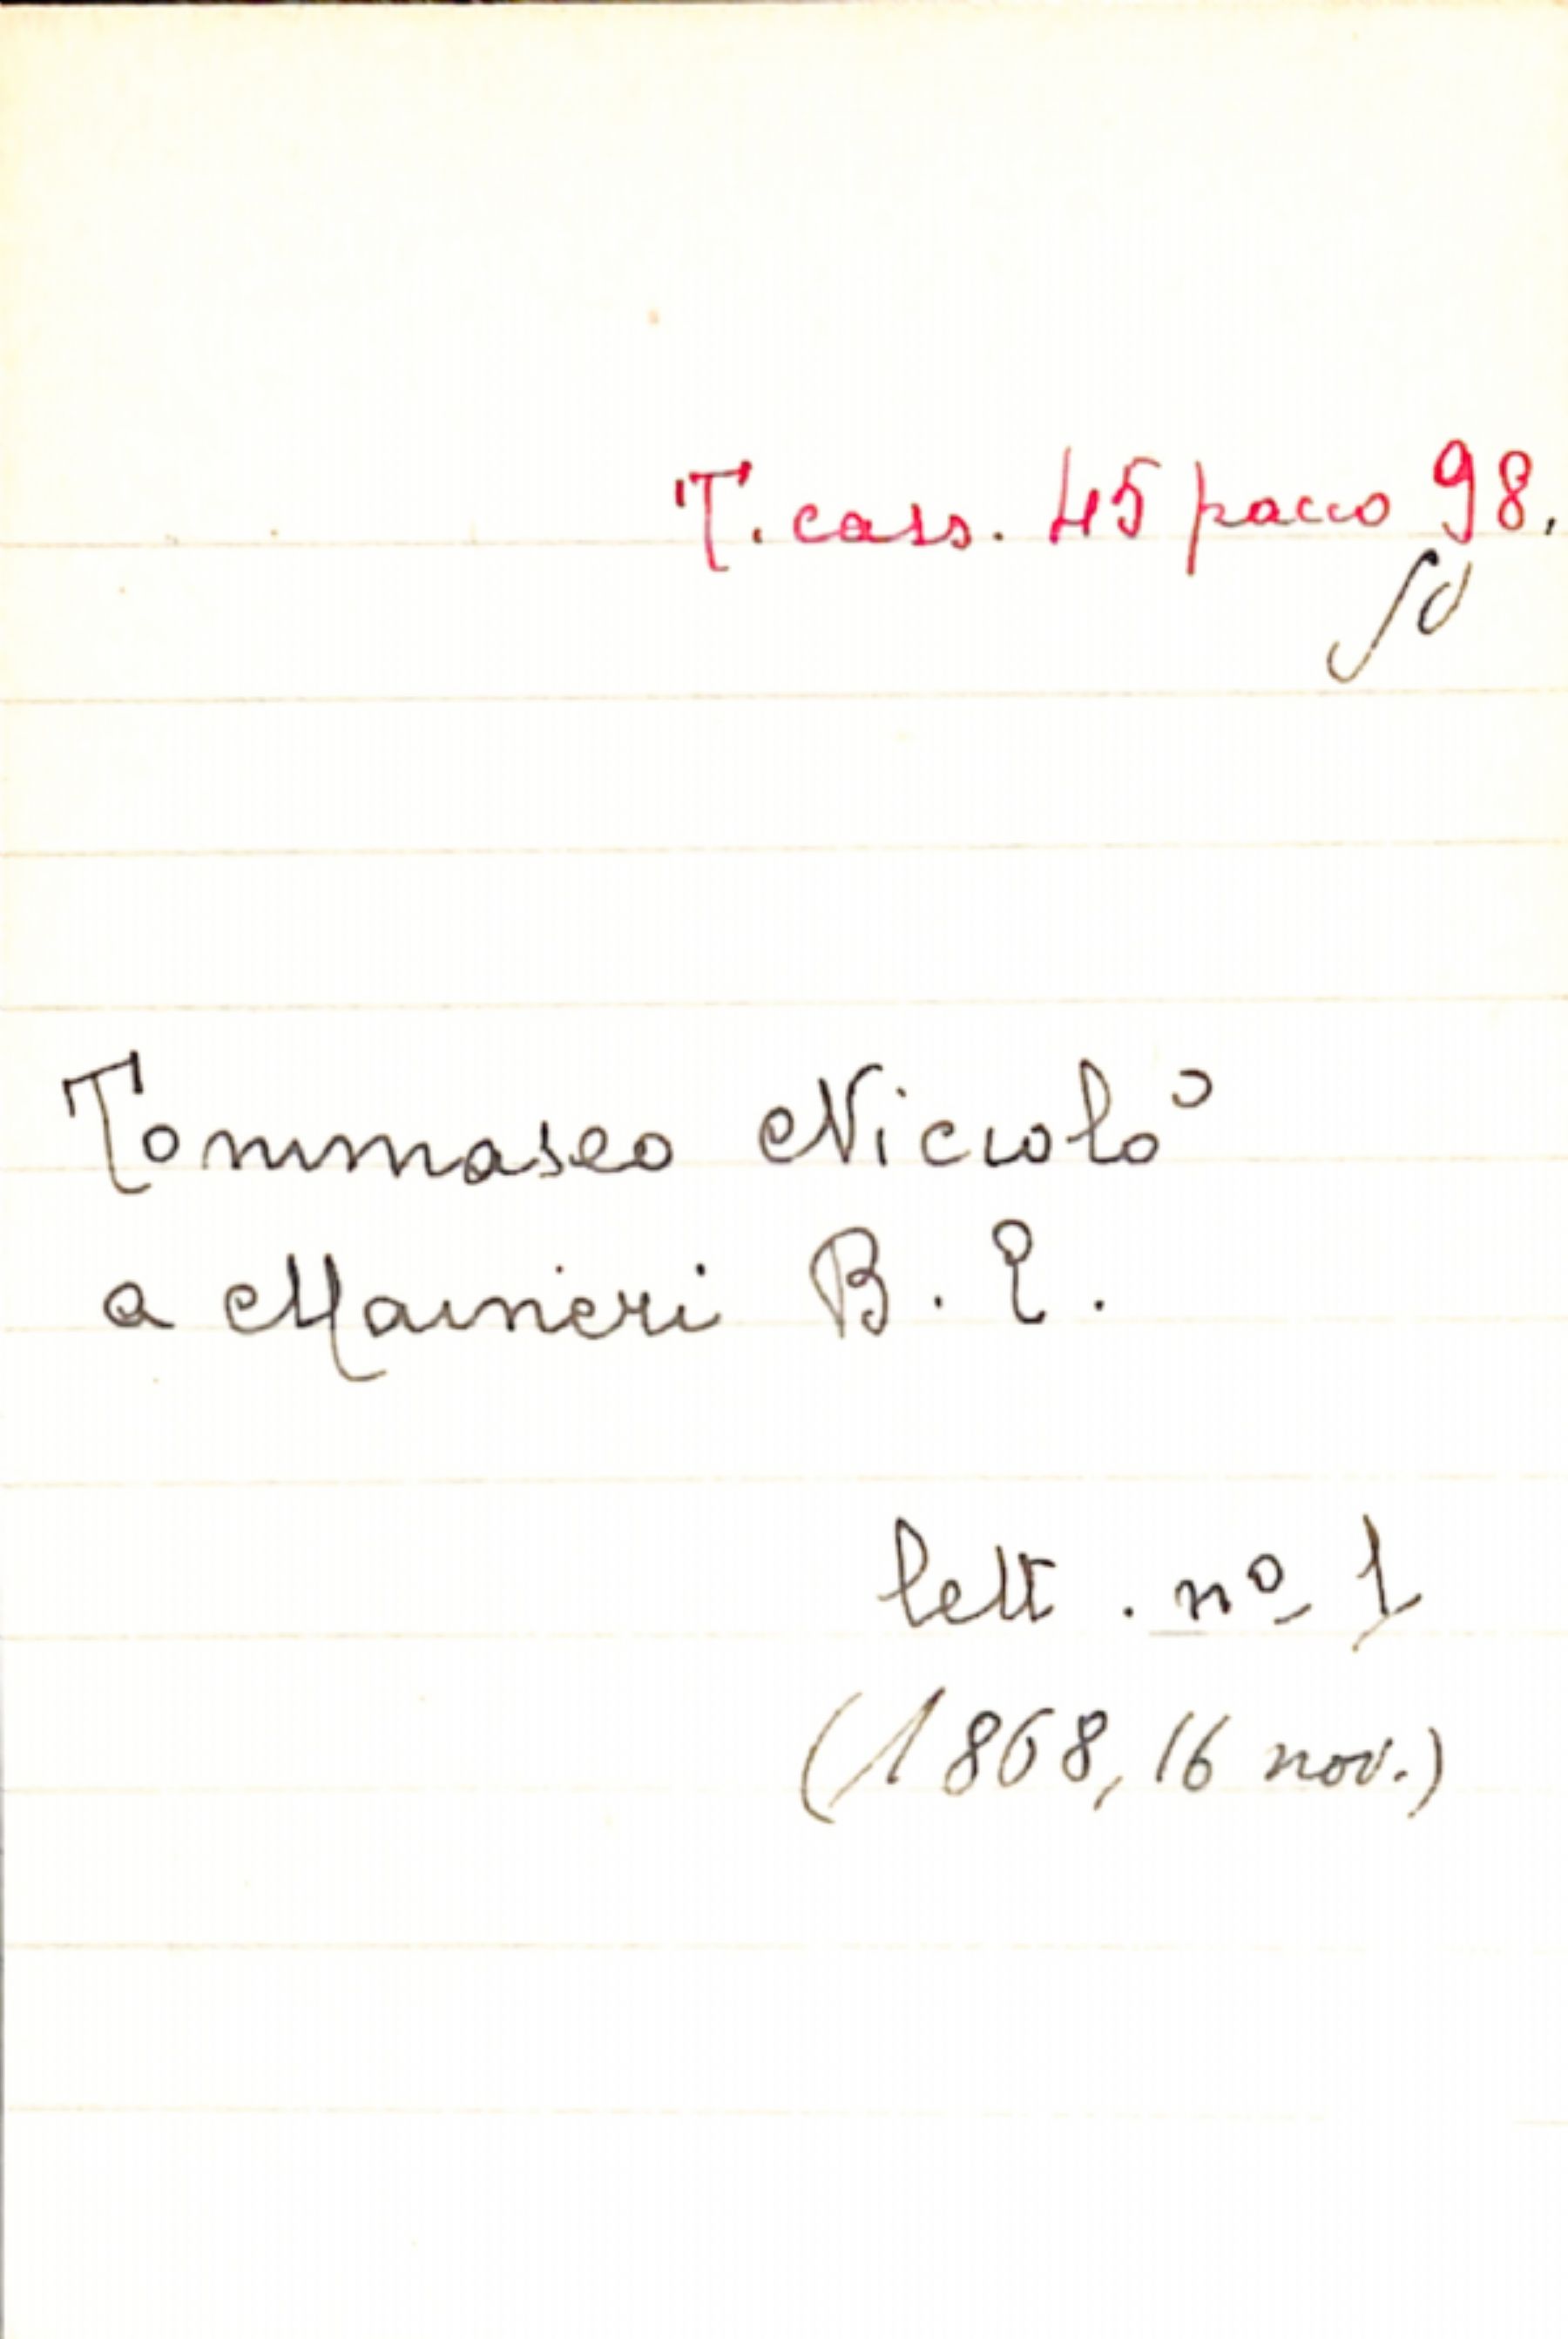 T. cass. 45 pacco 98,
Tommaseo Niccolò
a Maineri B. E.
lett. nº 1
(1868, 16 nov.)